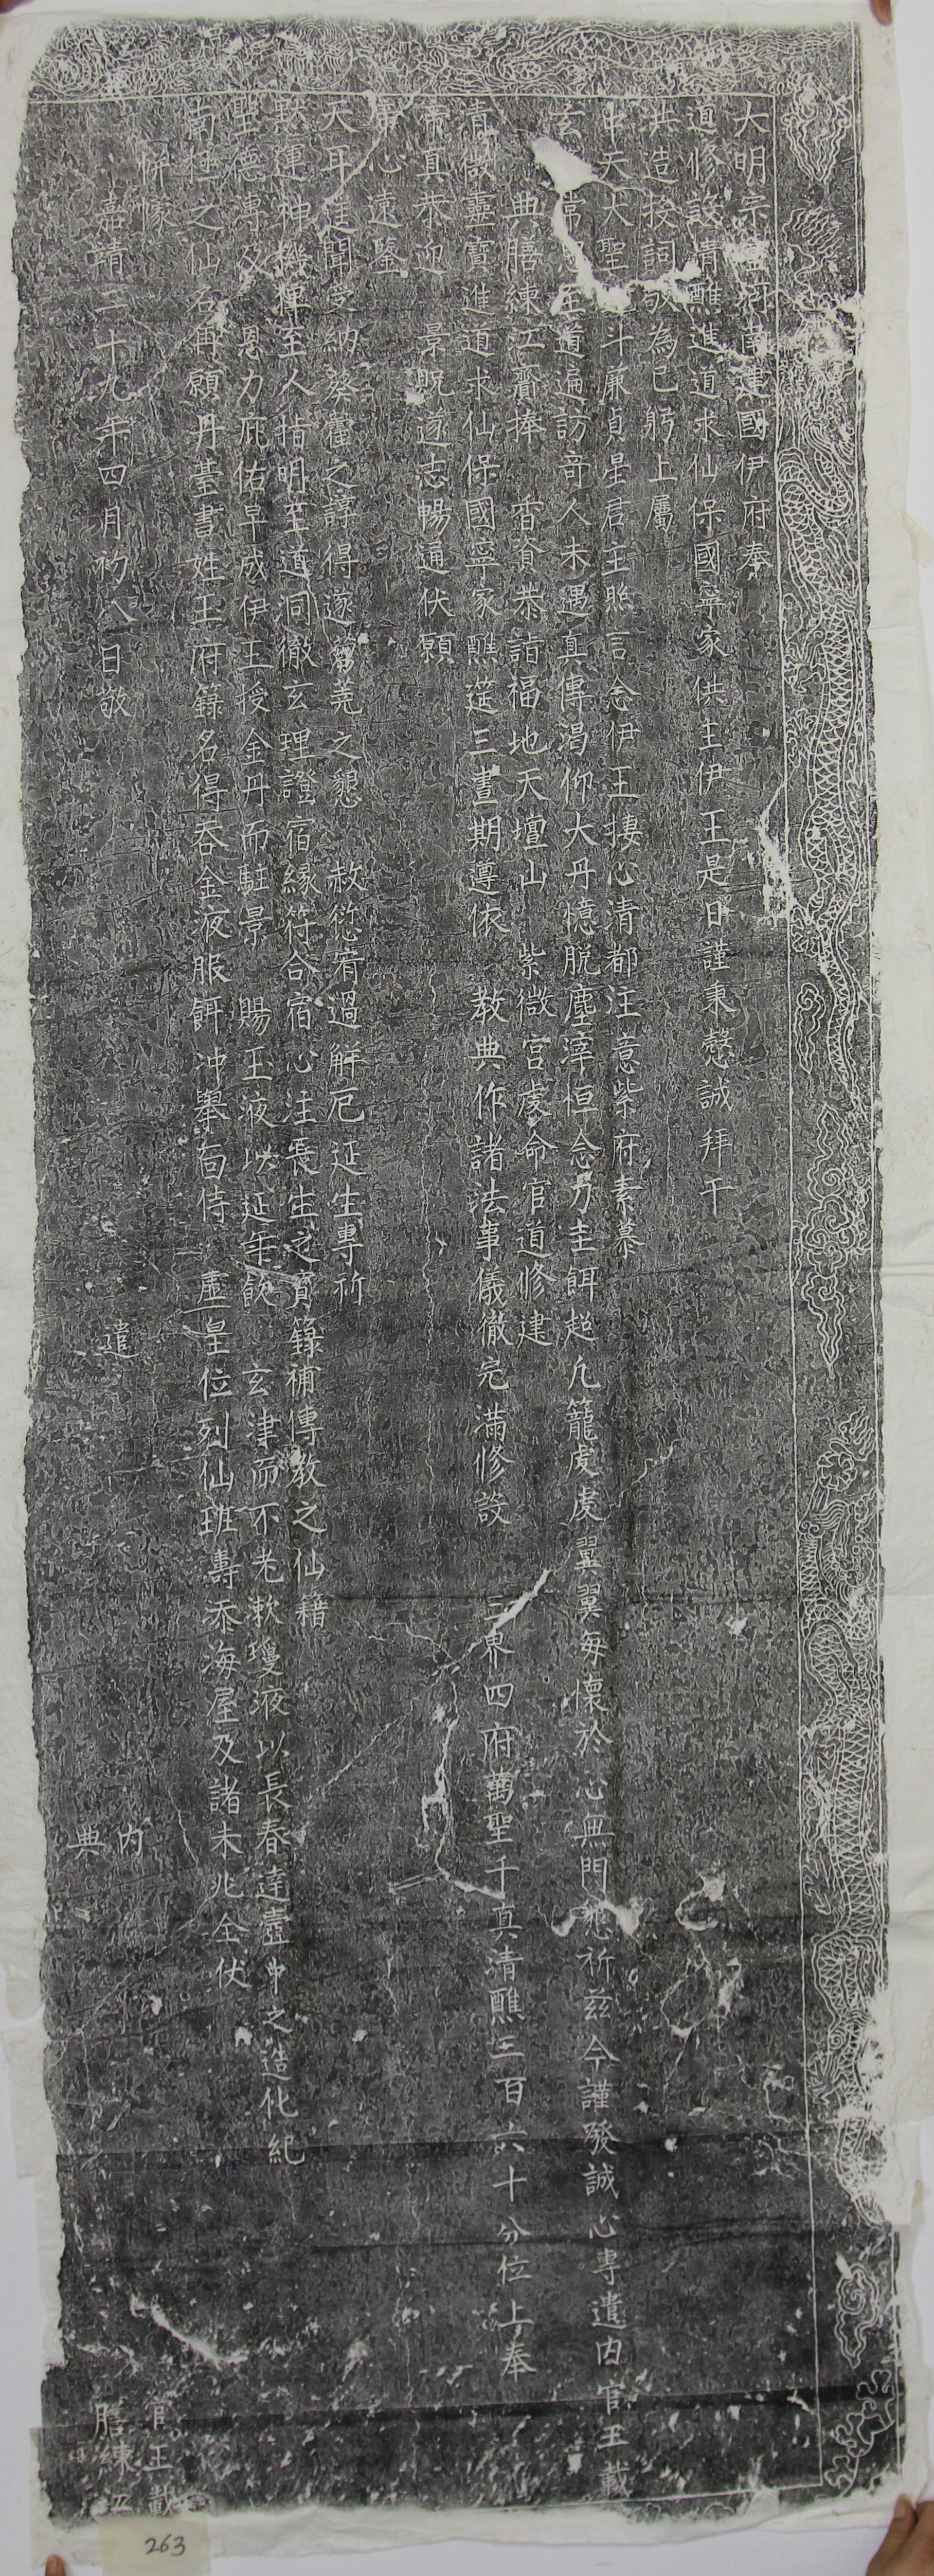 大明宗藩河南建國伊府奉
道修設清醮進道求仙保國寧家供主伊王是日謹秉慤誠拜干
洪造投詞敬為己躬上屬
中天大聖北斗廉貞星君主照言念伊王捿心清都注意紫府素慕
玄常思至道遍訪奇人未遇真傳渴仰大丹憶脫塵滓恒念刀圭餌超凡籠虔虔翼翼每懷於心無門祈兹今謹發誠心專遣内官王載
典膳練江齎捧 香資恭詣福地天壇山 紫微宮處命官道修建
清微靈寶進道求仙保國寧家醮筵三晝期遵依 教典作諸法事儀徹完滿修設 三界四府萬聖千真清醮三百六十分位上奉
帝真恭迎 景貺遂志暢通伏願
心遠鑒
天耳達聞受納葵藿之誠得遂芻蕘之懇 赦愆宥過解厄延生專祈
默運神機揮至人指明至道洞徹玄理證宿緣符合宿心注長生之寶籙補傳教之仙籍
聖德專及恩力庇佑早成伊王授金丹而駐景 賜玉液以延年飲 玄津而不老漱瓊液以長春達壺中之造化紀
南極之仙名再願丹臺書姓王府籙名得吞金液服餌冲舉面侍 虛皇位列仙班壽添海屋及諸未兆全伏
忻懞
嘉靖三十九年四月初八日敬 遣 内官王載
典膳練江
263